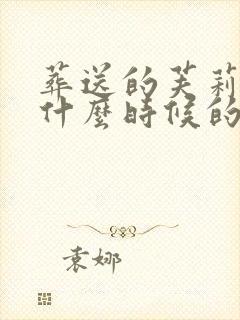 葬送的芙莉
什麼時候的
袁娜